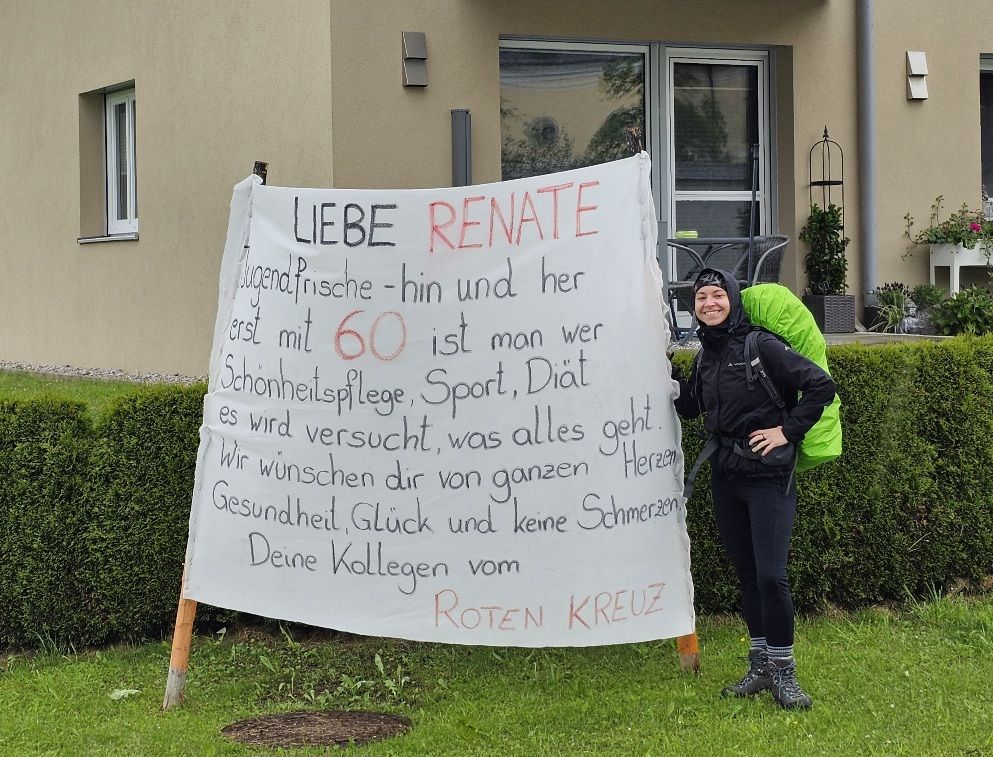 LIEBE RENATE
Jugendfrische - hin und her
erst mit 60 ist man wer
Schönheitspflege, Sport, Diät
es wird versucht, was alles geht.
Wir wünschen dir von ganzen Herzen
Gesundheit, Glück und keine Schmerzen.
Deine Kollegen vom
ROTEN KREUZ